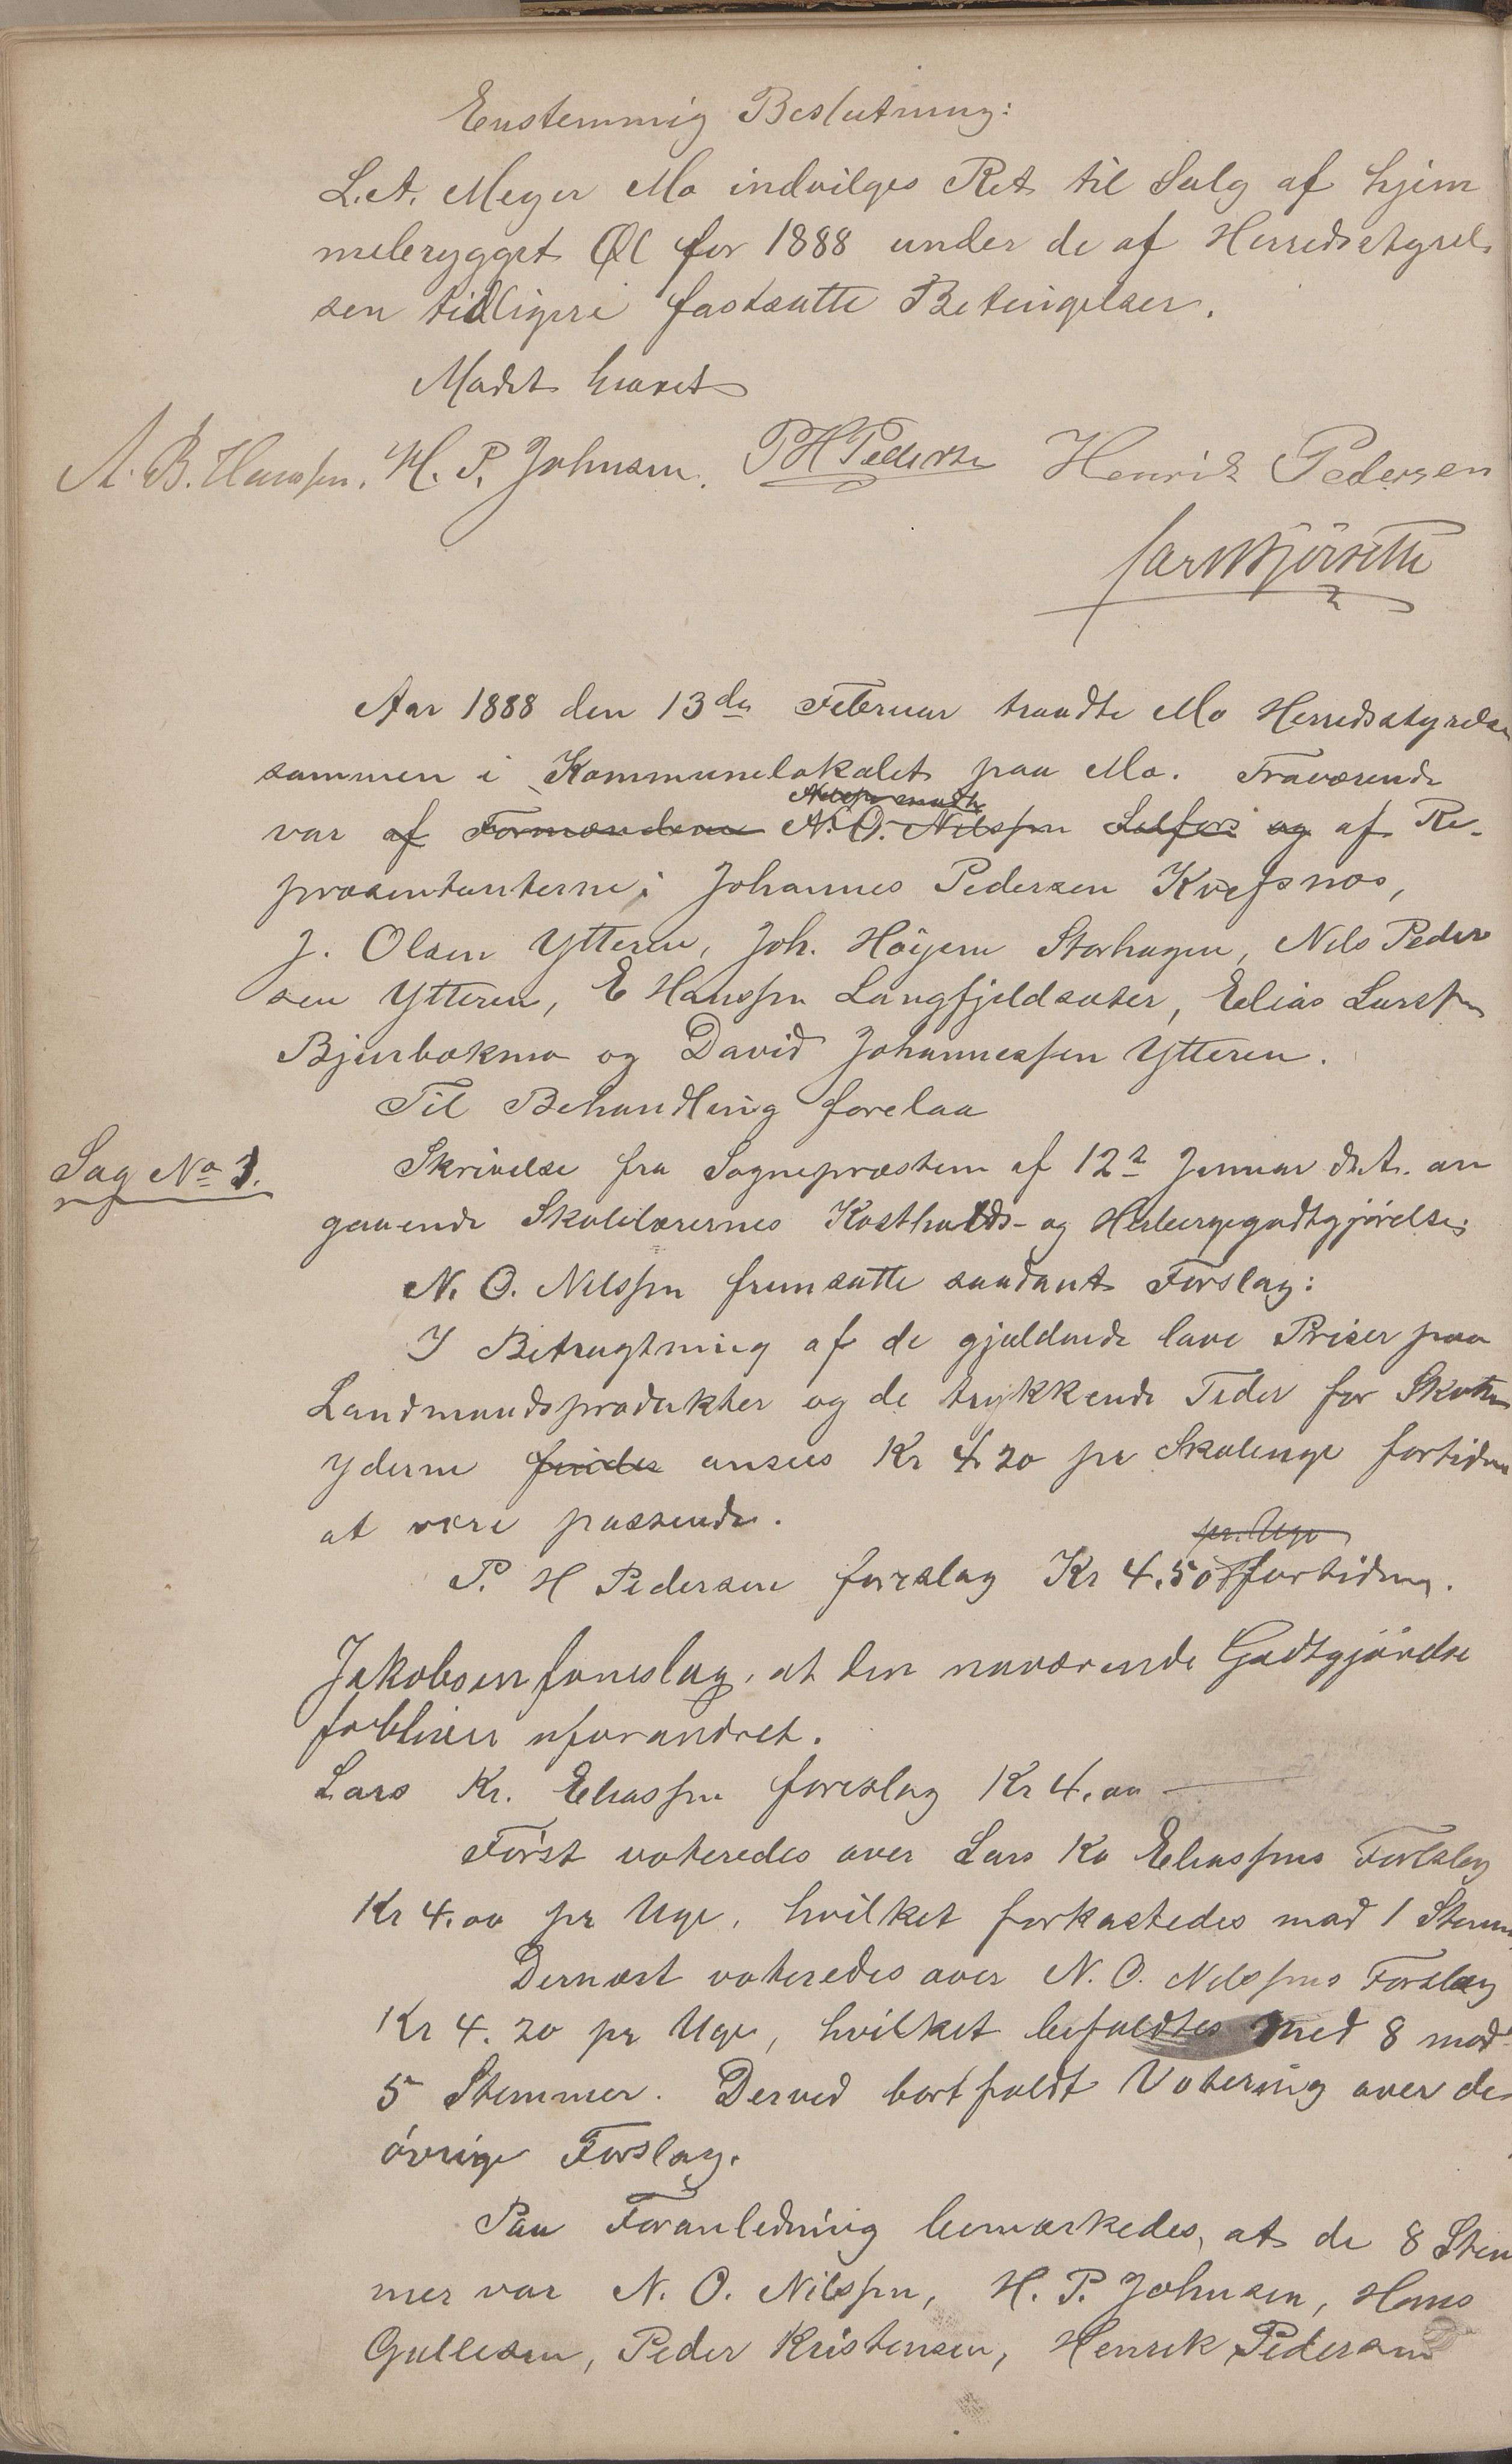 Enstemmig Beslutning:
L.A. Meyer Mo indvilges Ret til Salg af hjem
mebrygget Øl for 1888 under de af Herredsstyrel
sen tidligere fastsatte Betingelser.
Mødet hævet
A. B. Hanssen. H. P. Johnsen. P H Pedersen Henrik Pedersen
Aar 1888 den 13de Februar traadte Mo Herredsstyrelse
sammen i Kommunelokalet paa Mo. Fraværende
var af Formændene N. O. Nilssen Selfors og af Re-
præsentanterne: Johannes Pedersen Kvefsnæs,
J. Olsen Ytteren, Joh. Höijem Storhagen, Nils Peder
sen Ytteren, E Hanssen Langfjeldsæter, Elias Larssen
Bjurbækmo og David Johannessen Ytteren.
Til Behandling forelaa
Sag No 1. Skrivelse fra Sognepræsten af 12te Januar d.A. an
gaaende Skolelærernes Kostholds- og Herbergegodtgjörelse.
N. O. Nilssen fremsatte saadant Forslag:
I Betragtning af de gjældende lave Priser paa
Landmandsprodukter og de trykkende Tider for Skatte
yderne findes ansees Kr 4.20 pr Skoleuge fortiden
at være passende.
pr. Uge
P. H Pedersen foreslog Kr 4.50 fortiden.
Jakobsen foreslog, at den nuværende Godtgjörelse
forbliver uforandret.
Lars Kr. Eliassen foreslog Kr 4.00
Först voteredes over Lars Kr Eliassens Forslag
Kr 4.00 pr Uge, hvilket forkastedes mod 1 Stemme
Dernæst voteredes over N. O. Nilssens Forslag
Kr 4.20 pr Uge, hvilket bifaldtes med 8 mod
5 Stemmer. Derved bortfaldt Votering over de
övrige Forslag.
Paa Foranledning bemærkedes, at de 8 Stem
mer var N. O. Nilssen, H. P. Johnsen, Hans
Gullesen, Peder Kristensen, Henrik Pedersen